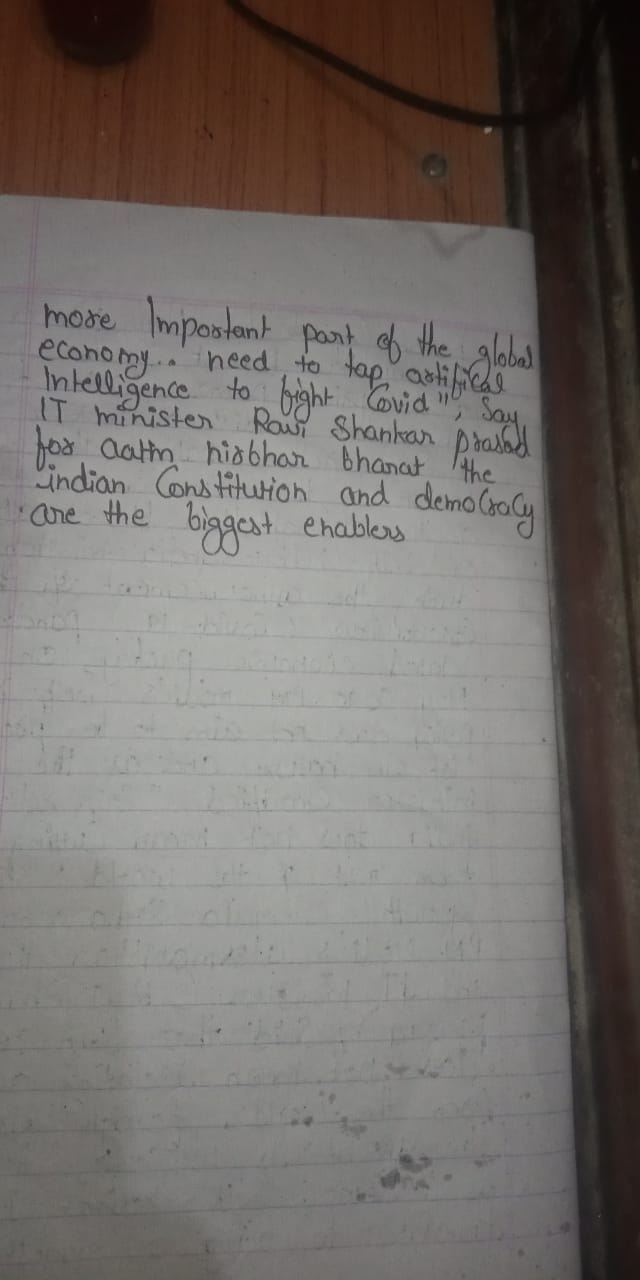 more Important part of the global
economy.. need to tap artifical
Intelligence to fight Covid", Say
IT minister Ravi Shankar prasad
for aatm nirbhar bharat the
indian Constitution and democracy
are the biggest enablers